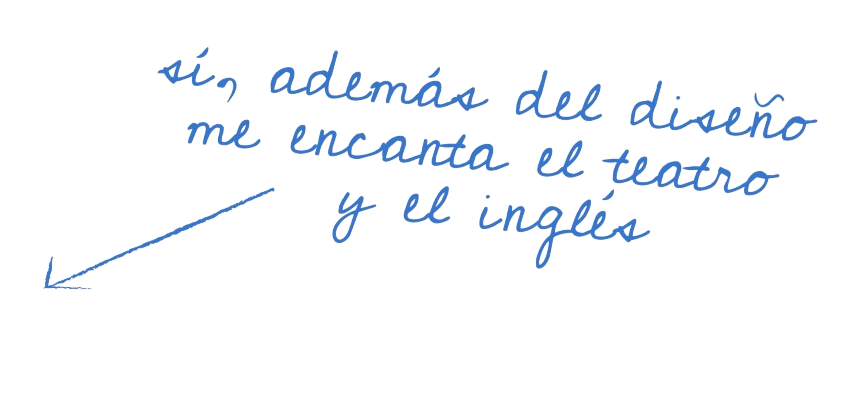 sí, además del diseño
me encanta el teatro
y el inglés